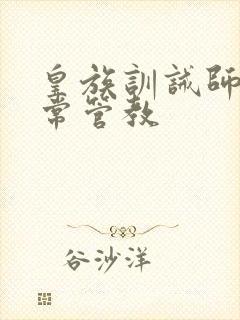 皇族訓誡師
常管教
谷沙洋